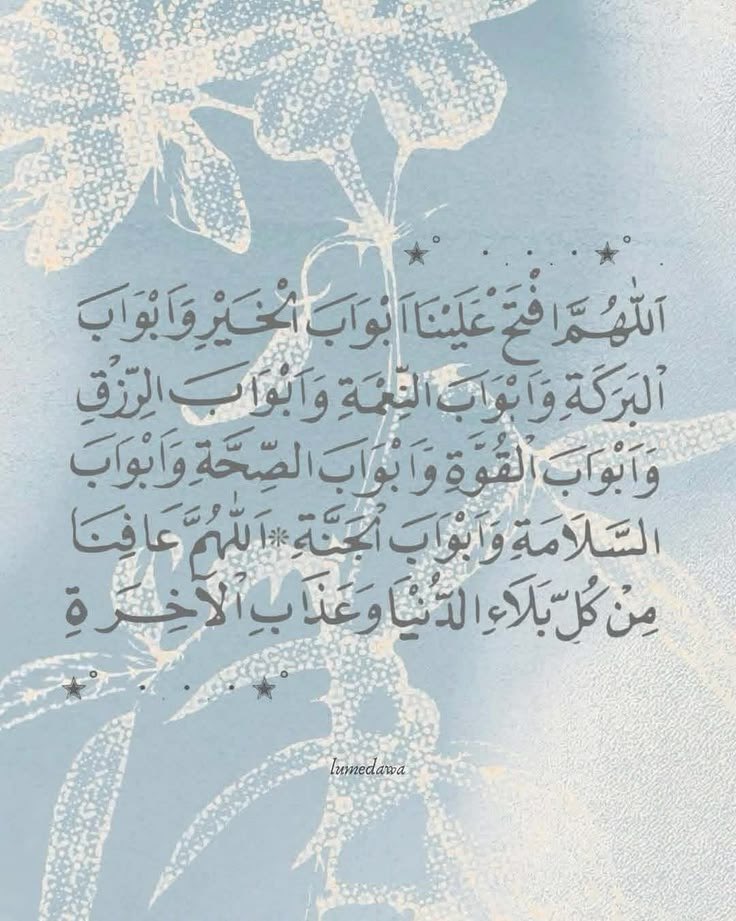 اَللّٰهُمَّ افْتَحْ عَلَيْنَا اَبْوَابَ الْخَيْرِ وَاَبْوَابَ
الْبَرَكَةِ وَاَبْوَابَ النِّعْمَةِ وَاَبْوَابَ الرِّزْقِ
وَاَبْوَابَ الْقُوَّةِ وَاَبْوَابَ الصِّحَّةِ وَاَبْوَابَ
السَّلَامَةِ وَاَبْوَابَ الْجَنَّةِ * اَللّٰهُمَّ عَافِنَا
مِنْ كُلِّ بَلَاءِ الدُّنْيَا وَعَذَابِ الْآخِرَةِ
lumedawa